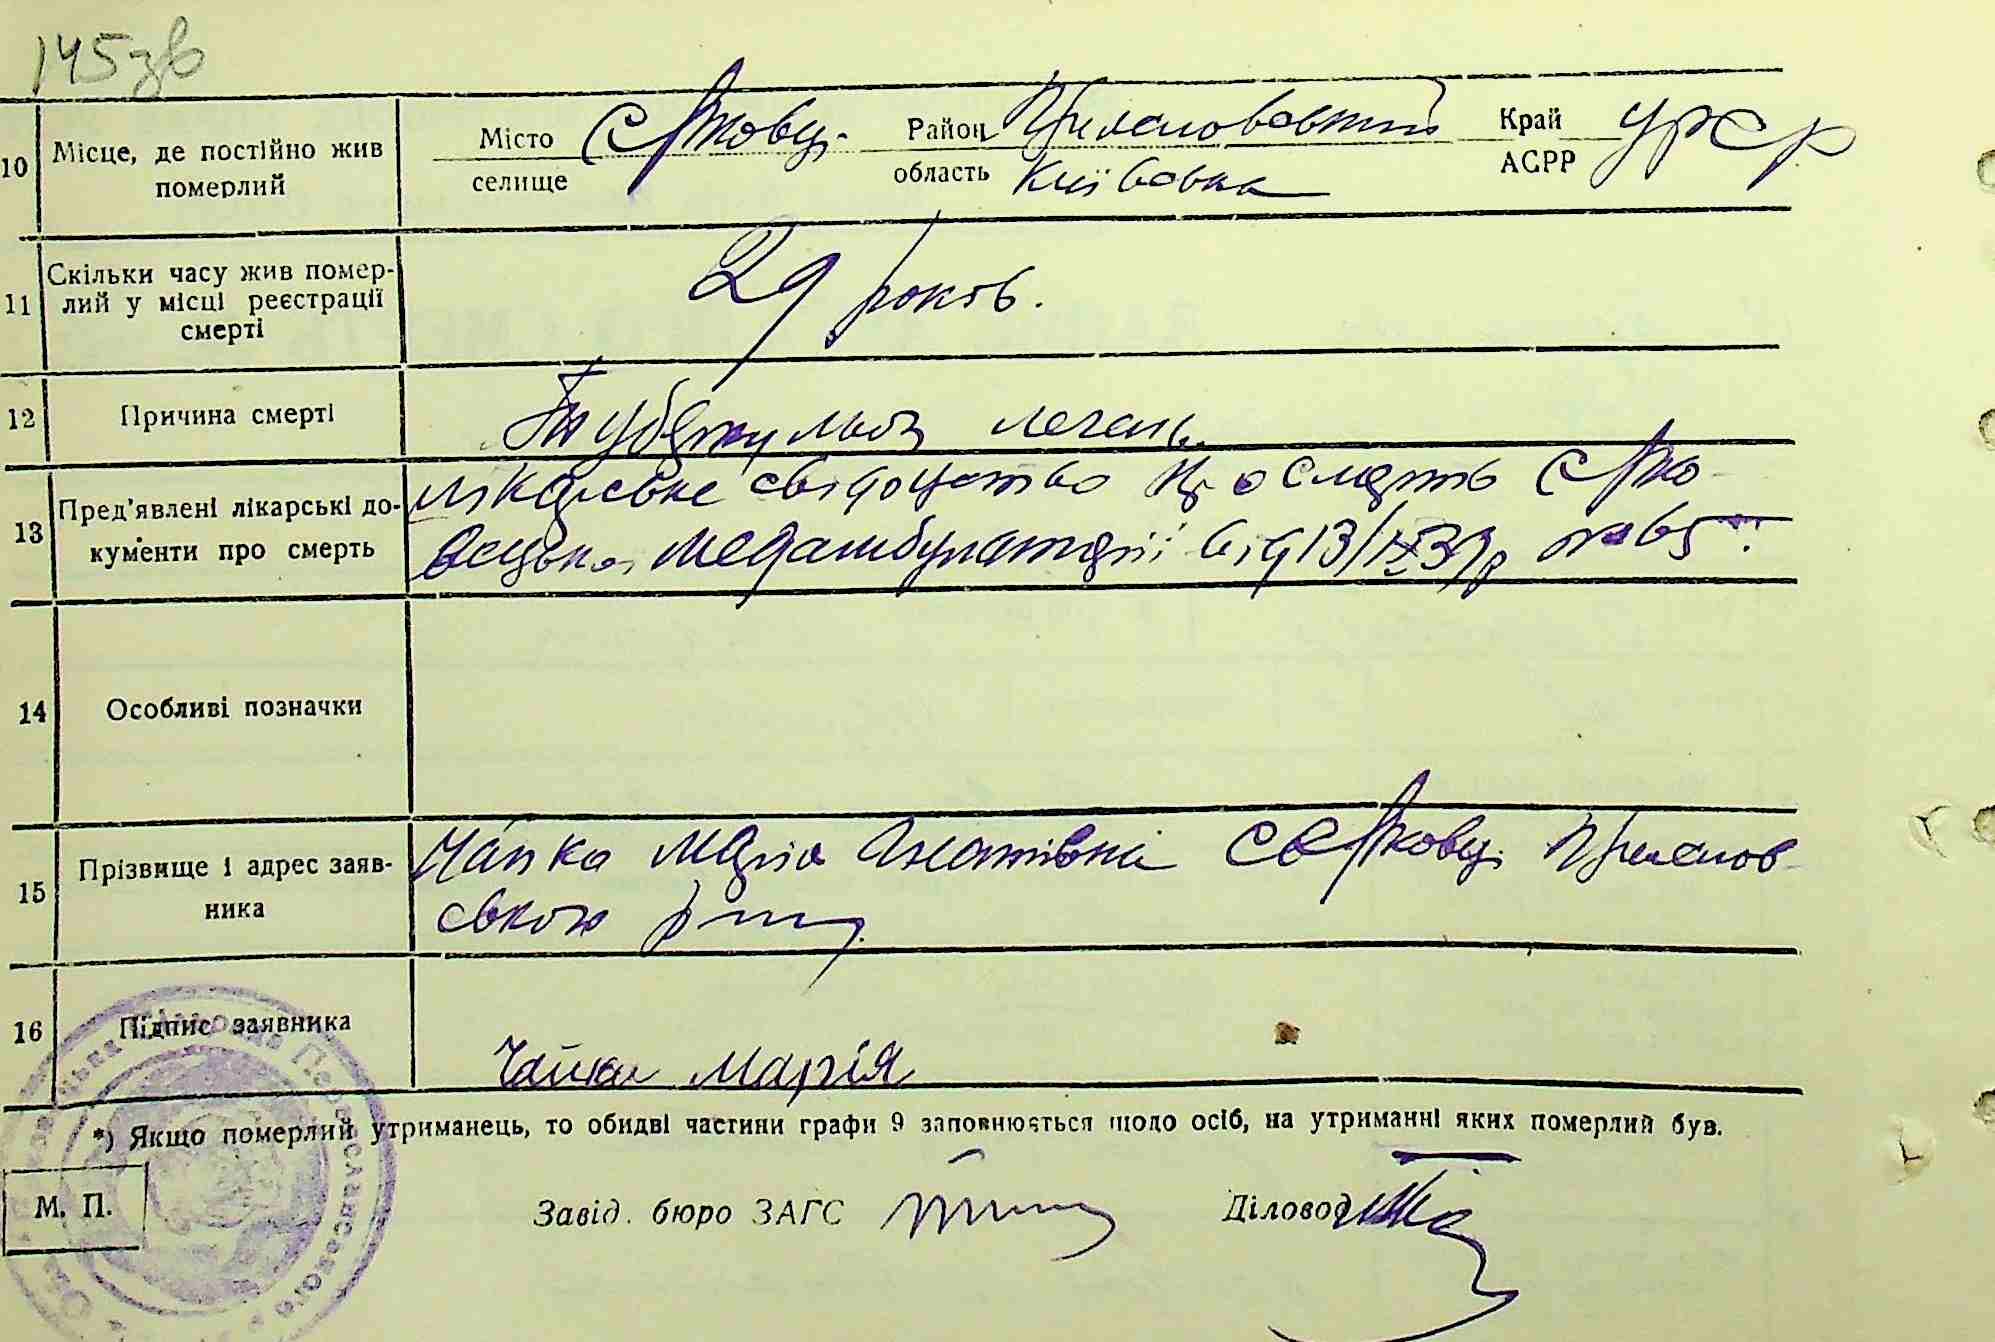 145зв
10 Місце, де постійно жив померлий
Місто селище с Яковці Район область Київська Край АСРР УРСР
11 Скільки часу жив помер-
лий у місці реєстрації
смерті
29 років.
12 Причина смерті
Туберкульоз легень
13 Пред'явлені лікарські до-
кументи про смерть
лікарське свідоцтво про смерть
медамбулаторії від 13/IX 39р № 65
14 Особливі позначки
15 Прізвище і адрес заяв-
ника
Чайка Марія Гнатівна
16 Підпис заявника
Чайка Марія
*) Якщо померлий утриманець, то обидві частини графи 9 заповнюється щодо осіб, на утриманні яких померлий був.
М. П.
Завід. бюро ЗАГС
Діловод